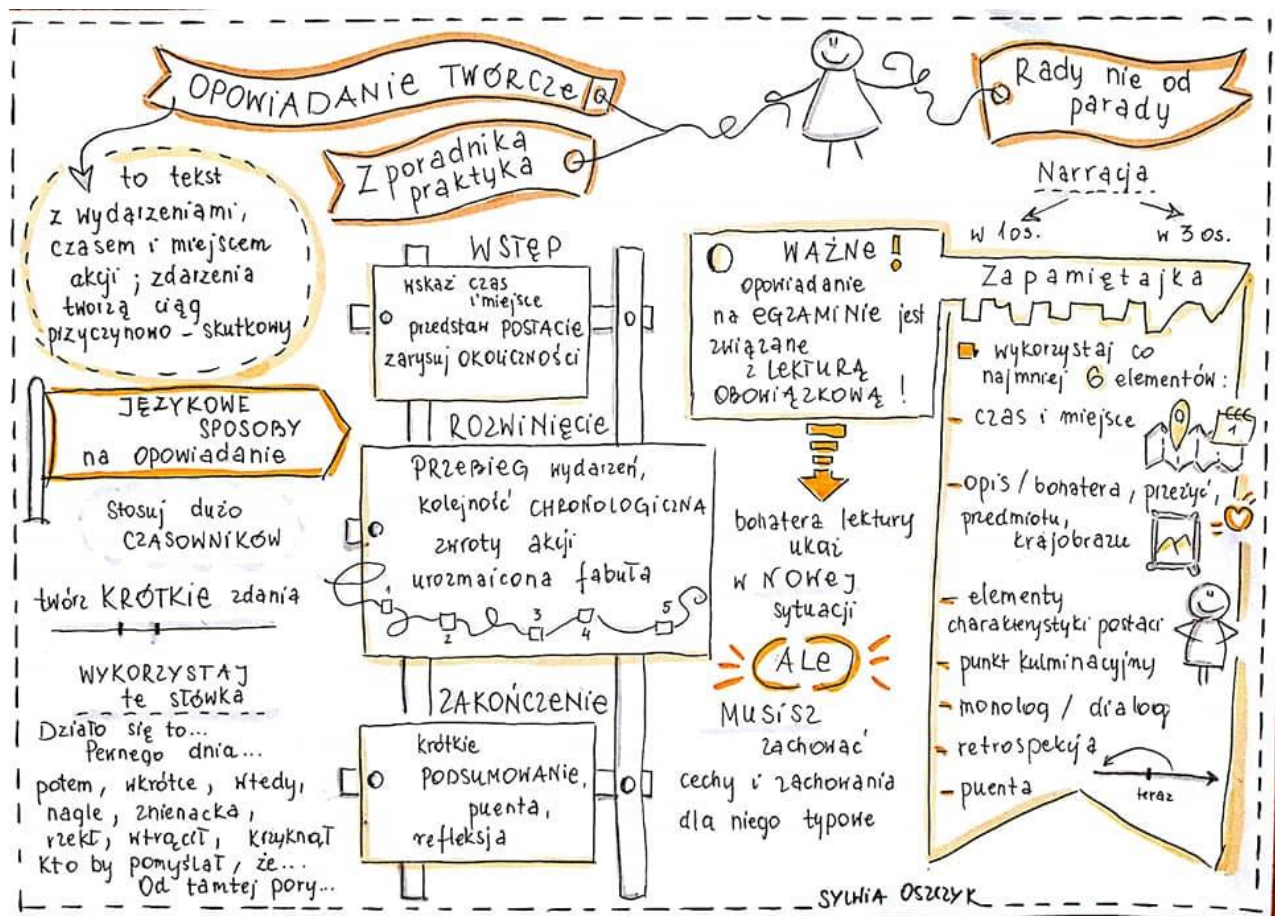 OPOWIADANIE TWÓRCZE
Z poradnika
praktyka
Rady nie od
parady
to tekst
z wydarzeniami,
czasem i miejscem
akcji ; zdarzenia
tworzą ciąg
przyczynowo - skutkowy
JĘZYKOWE
SPOSOBY
na opowiadanie
Stosuj dużo
CZASOWNIKÓW
twórz KRÓTKIE zdania
WYKORZYSTAJ
te słówka
Działo się to...
Pewnego dnia...
potem, wkrótce, wtedy,
nagle, znienacka,
rzekł, wtrącił, krzyknął
Kto by pomyślał, że...
Od tamtej pory...
WSTĘP
wskaż czas
i miejsce
przedstaw POSTACIE
zarysuj OKOLICZNOŚCI
ROZWINIĘCIE
PRZEBIEG wydarzeń,
kolejność CHRONOLOGICZNA
zwroty akcji
urozmaicona fabuła
1 2 3 4 5
ZAKOŃCZENIE
krótkie
PODSUMOWANIE,
puenta,
refleksja
WAŻNE!
opowiadanie
na EGZAMINIE jest
związane
z LEKTURĄ
OBOWIĄZKOWĄ!
bohatera lektury
ukaż
w NOWEJ
sytuacji
ALE
MUSISZ
zachować
cechy i zachowania
dla niego typowe
Narracja
w 1 os. w 3 os.
Zapamiętajka
wykorzystaj co
najmniej 6 elementów:
- czas i miejsce
1
- opis / bohatera, przeżyć,
przedmiotu,
krajobrazu
- elementy
charakterystyki postaci
- punkt kulminacyjny
- monolog / dialog
- retrospekcja
- puenta
teraz
SYLWIA OSZCZYK